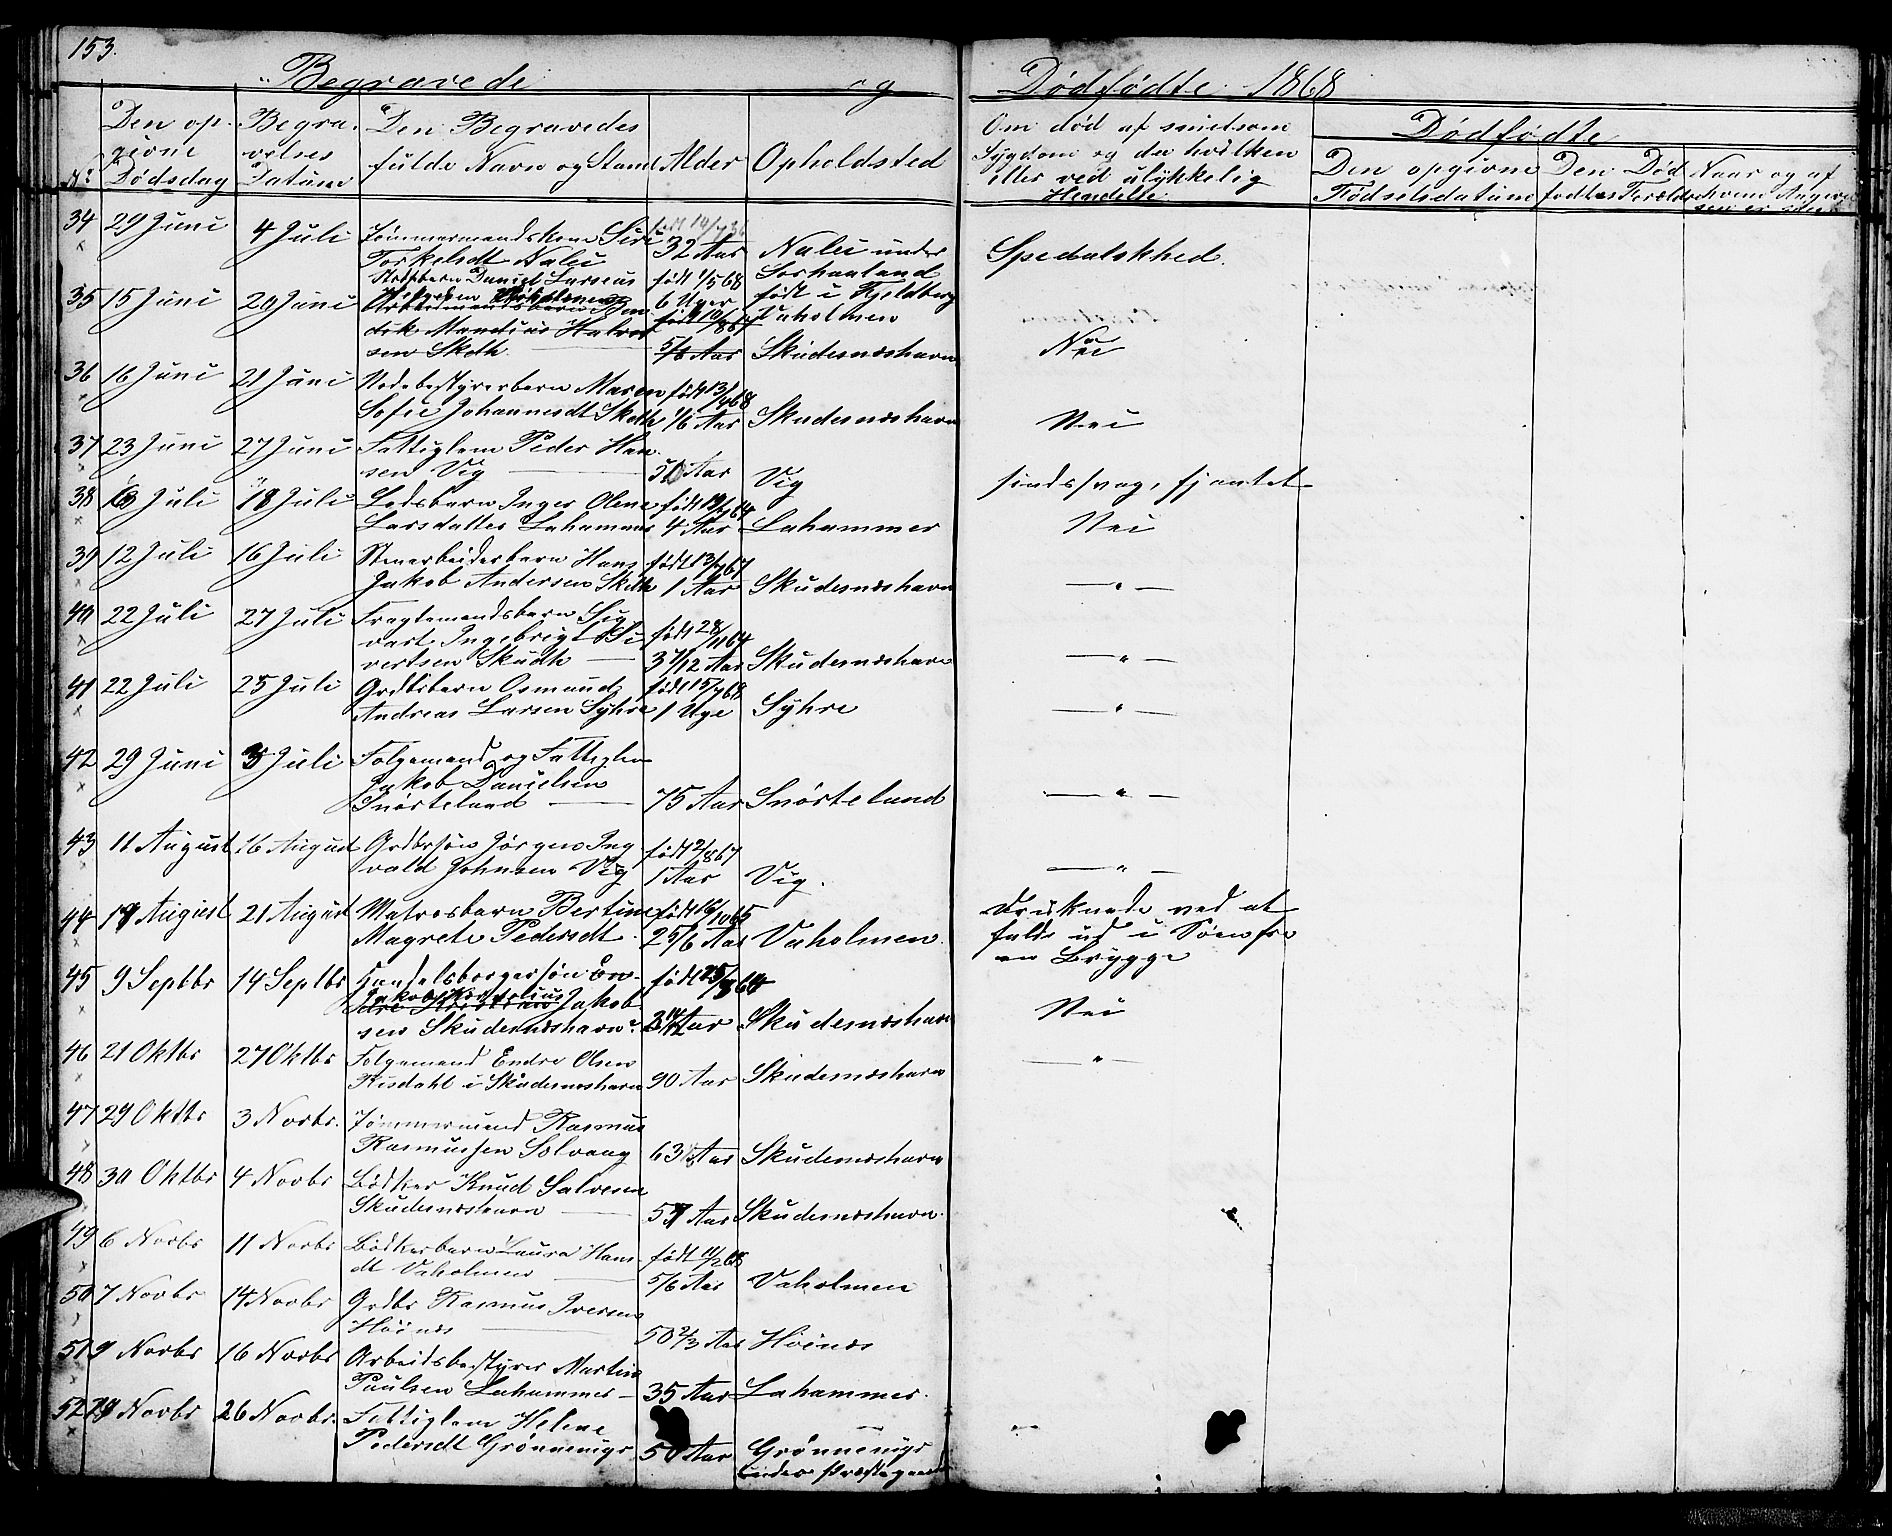 153.
Begravede og Dødfødte 1868
No
Den opgivne Dødsdag
Begravelses Datum
Den Begravedes fulde Navn og Stand
Alder
Opholdsted
Om død af smitsom Sygdom og da hvilken eller ved ulykkelig Hendelse.
Dødfødte
Den opgivne Fødselsdatum
Den Dødfødtes Forældre
Naar og af hvem
34 29 Juni 4 Juli Tømmermandskone Siri
Torkelsdt Nalei
32 Aar Nalei under
Sørhaaland
Spedalskhed.
35 15 Juni 20 Juni
Daniel Larsens
født 1/5 68
6 Uger
født i Fjeldberg
Vaholmen
Arbeidmandsbarn
5/6 Aar Skudesnæshavn
Nei
36 16 Juni 21 Juni barn Maren
Sofie Johannesdt Skdh
født 13/4 68
1/6 Aar Skudesnæshavn
Nei
37 23 Juni 27 Juni Fattiglem Peder Han
sen Vig
Aar Vig
sindssvag, fjantet
38 Juli 18 Juli Lodsbarn Inger Olene
Larsdatter Lahammer
4 Aar Lahammer
Nei
39 12 Juli 16 Juli Stenarbeiderbarn Hans
Jakob Andersen Skdh
født 13/7 67
1 Aar Skudesnæshavn
— " —
40 22 Juli 27 Juli Fragtemandsbarn Sig
vart Ingebrigt Si
vertsen Skudh —
født 28/11 64
3 7/12 Aar Skudesnæshavn
— " —
41 22 Juli 25 Juli Grdbrbarn Osmund
Andreas Larsen Syhre
født 15/7 68
1 Uge Syhre
— " —
42 29 Juni 3 Juli Folgemand og Fattiglem
Jakob Danielsen
Snørteland —
75 Aar Snørteland
— " —
43 11 August 16 August Grdbrsøn Jørgen Ing
vald Johnsen Vig
født 2/8 67
1 Aar Vig.
— " —
44 August 21 August Matrosbarn Bertine
Magrete Pedersdt.
født 16/10 65
2 5/6 Aar Vaholmen.
Druknede ved at
falde ud i Søen fra
en Brygge
45 9 Septbr 14 Septbr Handelsborgersøn En
Jakob Kornelius Jakob
sen Skudesnæshavn
Aar Skudesnæshavn
Nei
46 21 Oktbr 27 Oktbr Folgemand Endre Olsen
Risdahl i Skudesnæshavn
90 Aar Skudesnæshavn
— " —
47 29 Oktbr 3 Novbr. Tømmermand Rasmus
Rasmussen Solvaag
63 Aar Skudesnæshavn
48 30 Oktbr 4 Novbr Bødker Knud Salvesen
Skudesnæshavn —
Aar Skudesnæshavn.
49 6 Novbr 11 Novbr Bødkerbarn Laura Hans
dt Vaholmen —
født 11/2 68
5/6 Aar Vaholmen
50 7 Novbr 14 Novbr Grdbr Rasmus Iversen
Høines —
50 2/3 Aar Høines
51 9 Novbr 16 Novbr Arbeidsbestyrer Martin
Paulsen Lahammer —
35 Aar Lahammer.
52 Novbr 26 Novbr. Fattiglem Helene
Pedersdt Grønnenigr
50 Aar Grønnenigr
under Præstegaard